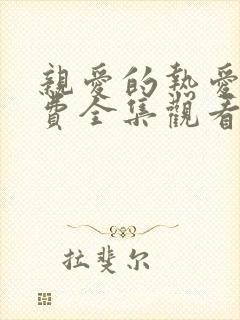 親愛的熱愛
費全集觀看
拉斐尔